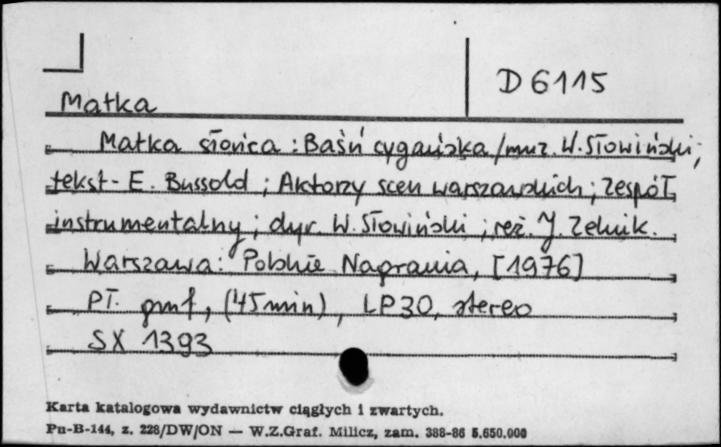 D 6115
Matka
Matka słońca : Baśń cygańska / muz. W. Słowiński ;
tekst - E. Bussold ; Aktorzy scen warszawskich ; Zespół
instrumentalny ; dyr. W. Słowiński ; reż. J. Zelnik.
Warszawa : Polskie Nagrania, [1976]
Pł. gmf, (45 min), LP30, stereo
SX 1393
Karta katalogowa wydawnictw ciągłych i zwartych.
Pu-B-144, z. 228/DW/ON — W.Z.Graf. Milicz, zam. 388-86 5.650.000